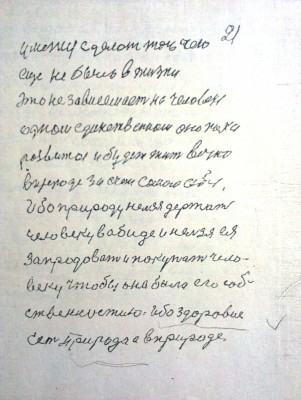 21
и может сделат то чего
еще не было в жизни
Это не зависемает на человеке
одном единственном оно пока
развито и будет жит вечно
в природе за счет самого себя,
Ибо природу нелзя держат
человеку в обиде и нелзя ея
запродоват и покупат чело-
веку чтобы она была его соб-
ственностию. Ибо здоровие
ест природа а в природе.